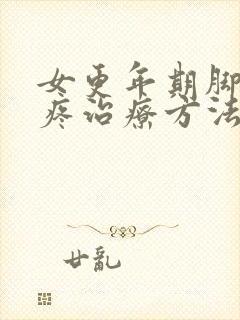 女更年期脚
疼治疗方法
廿乱